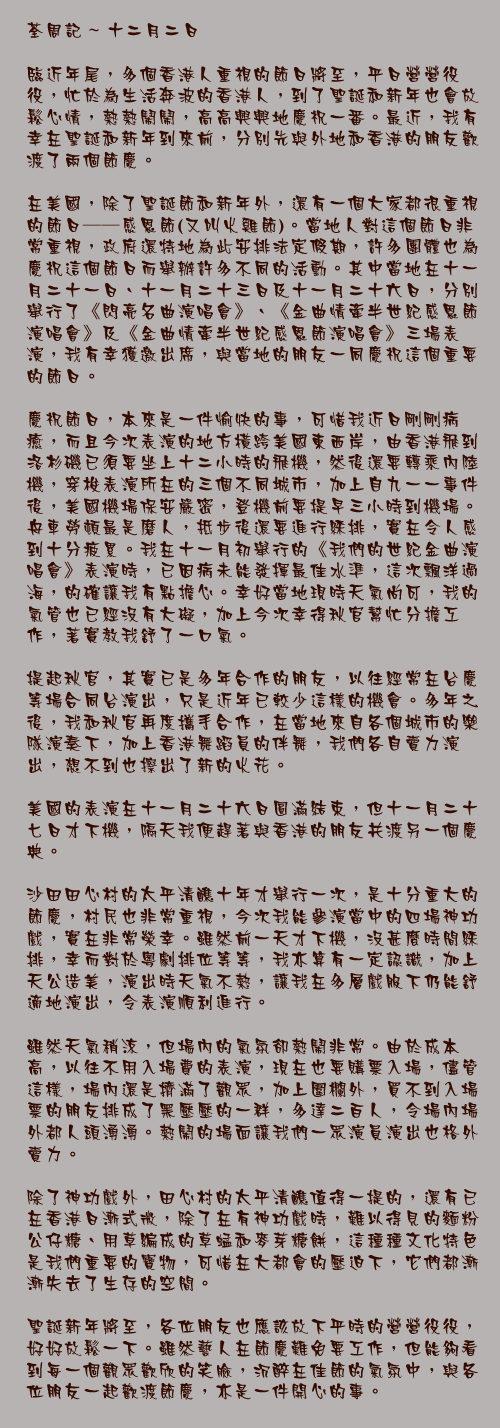 荃周記 ~ 十二月二日
臨近年尾，多個香港人重視的節日將至，平日營營役
役，忙於為生活奔波的香港人，到了聖誕和新年也會放
鬆心情，熱熱鬧鬧，高高興興地慶祝一番。最近，我有
幸在聖誕和新年到來前，分別先與外地和香港的朋友歡
渡了兩個節慶。
在美國，除了聖誕節和新年外，還有一個大家都很重視
的節日──感恩節(又叫火雞節)。當地人對這個節日非
常重視，政府還特地為此安排法定假期，許多團體也為
慶祝這個節日而舉辦許多不同的活動。其中當地在十一
月二十一日、十一月二十三日及十一月二十六日，分別
舉行了《閃亮名曲演唱會》、《金曲情牽半世紀感恩節
演唱會》及《金曲情牽半世紀感恩節演唱會》三場表
演，我有幸獲邀出席，與當地的朋友一同慶祝這個重要
的節日。
慶祝節日，本來是一件愉快的事，可惜我近日剛剛病
癒，而且今次表演的地方橫跨美國東西岸，由香港飛到
洛杉磯已須要坐上十二小時的飛機，然後還要轉乘內陸
機，穿梭表演所在的三個不同城市，加上自九一一事件
後，美國機場保安嚴密，登機前要提早三小時到機場。
舟車勞頓最是磨人，抵步後還要進行綵排，實在令人感
到十分疲累。我在十一月初舉行的《我們的世紀金曲演
唱會》表演時，已因病未能發揮最佳水準，這次飄洋過
海，的確讓我有點擔心。幸好當地現時天氣尚可，我的
氣管也已經沒有大礙，加上今次幸得秋官幫忙分擔工
作，著實教我舒了一口氣。
提起秋官，其實已是多年合作的朋友，以往經常在台慶
等場合同台演出，只是近年已較少這樣的機會。多年之
後，我和秋官再度攜手合作，在當地來自各個城市的樂
隊演奏下，加上香港舞蹈員的伴舞，我們各自賣力演
出，想不到也擦出了新的火花。
美國的表演在十一月二十六日圓滿結束，但十一月二十
七日才下機，隔天我便趕著與香港的朋友共渡另一個慶
典。
沙田田心村的太平清醮十年才舉行一次，是十分重大的
節慶，村民也非常重視，今次我能參演當中的四場神功
戲，實在非常榮幸。雖然前一天才下機，沒甚麼時間綵
排，幸而對於粵劇排位等等，我亦算有一定認識，加上
天公造美，演出時天氣不熱，讓我在多層戲服下仍能舒
適地演出，令表演順利進行。
雖然天氣稍涼，但場內的氣氛卻熱鬧非常。由於成本
高，以往不用入場費的表演，現在也要購票入場，儘管
這樣，場內還是擠滿了觀眾，加上圍欄外，買不到入場
票的朋友排成了黑壓壓的一群，多達二百人，令場內場
外都人頭湧湧。熱鬧的場面讓我們一眾演員演出也格外
賣力。
除了神功戲外，田心村的太平清醮值得一提的，還有已
在香港日漸式微，除了在有神功戲時，難以得見的麵粉
公仔糖、用草編成的草蜢和麥芽糖餅，這種種文化特色
是我們重要的寶物，可惜在大都會的壓迫下，它們都漸
漸失去了生存的空間。
聖誕新年將至，各位朋友也應該放下平時的營營役役，
好好放鬆一下。雖然藝人在節慶難免要工作，但能夠看
到每一個觀眾歡欣的笑臉，沉醉在佳節的氣氛中，與各
位朋友一起歡渡節慶，亦是一件開心的事。